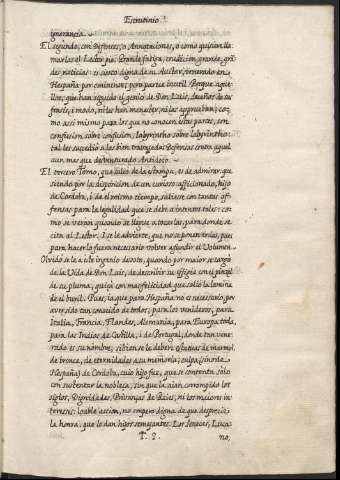 Escrutinio.
ignorancia.
El segundo, con Defensas, o Annotaciones, o como quisieren lla-
marlas el Lector pia. Grande fatiga, erudicion grande, gran-
des noticias: es cierto digna de su Auctor, venerado en
Hespaña por eminente; pero parte inutil. Porque aque-
llos, que han seguido el genio de Don Luis, dueños de su
frasis, i modo, ni las han menester, ni las approvban; co-
mo assi mismo para los que no conocen estas partes, son
confusion sobre confusion, labyrintho sobre labyrintho:
tal les sucedió a las bien trabajadas Defensas contra aquel
aun mas que desventurado Antidoto.
El tercero Tomo, que salio de la Estampa, es de admirar que
siendo por la disposicion de un curioso afficionado, hijo
de Cordova, i de el mismo tiempo, saliesse con tantas of-
fensas para la legalidad que se debe a intentos tales: co-
mo se veran quando se llegue a tocarlas, para donde se
cita al Lector. I se le advierte, que no se ponen todas, pues
para hacerlo fuera necesario volver a fundir el Volumen.
Olvidósele a este ingenio devoto, quando por maior se cargó
de la Vida de Don Luis, de describir su effigie con el pincel
de su pluma, quiça con mas felicidad que salió la lamina
de el buril. Pues, ia que para Hespaña no es necesario, por
aver sido tan conocido de todos; para los venideros, para
Italia, Francia, Flandes, Alemania; para Europa toda,
para las Indias de Castilla, i de Portugal, donde tan vene-
rado es su nombre; si bien se le deben estatuas de marmol,
de bronce, de eternidades a su memoria; culpa (sino de
Hespaña) de Cordova, cuio hijo fue, que se contenta solo
con sustentar la nobleza, sin que la aian corrompido los
siglos, Dignidades, Privanças de Reies, ni los maiores in-
teresses: loable accion, no empero digna de que desperdicie
la honra, que le dan hijos semejantes. Los Senecas, Luca-
no,
T. 2.